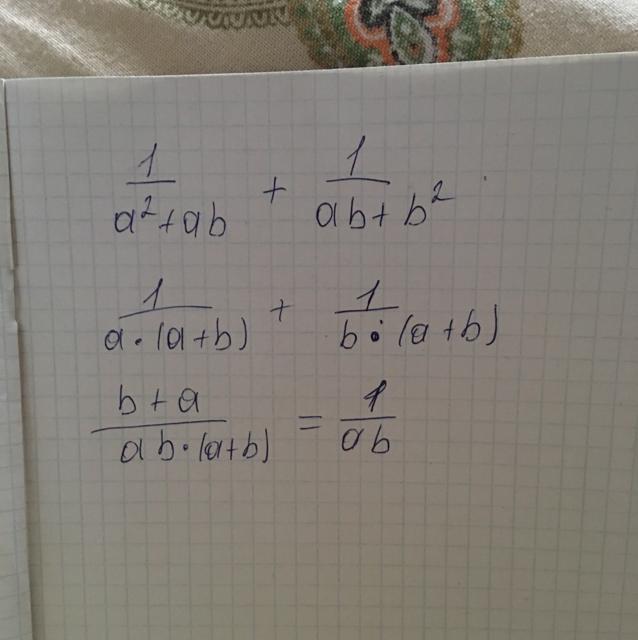 1/(a²+ab) + 1/(ab+b²)
1/(a·(a+b)) + 1/(b·(a+b))
(b+a)/(ab·(a+b)) = 1/(ab)